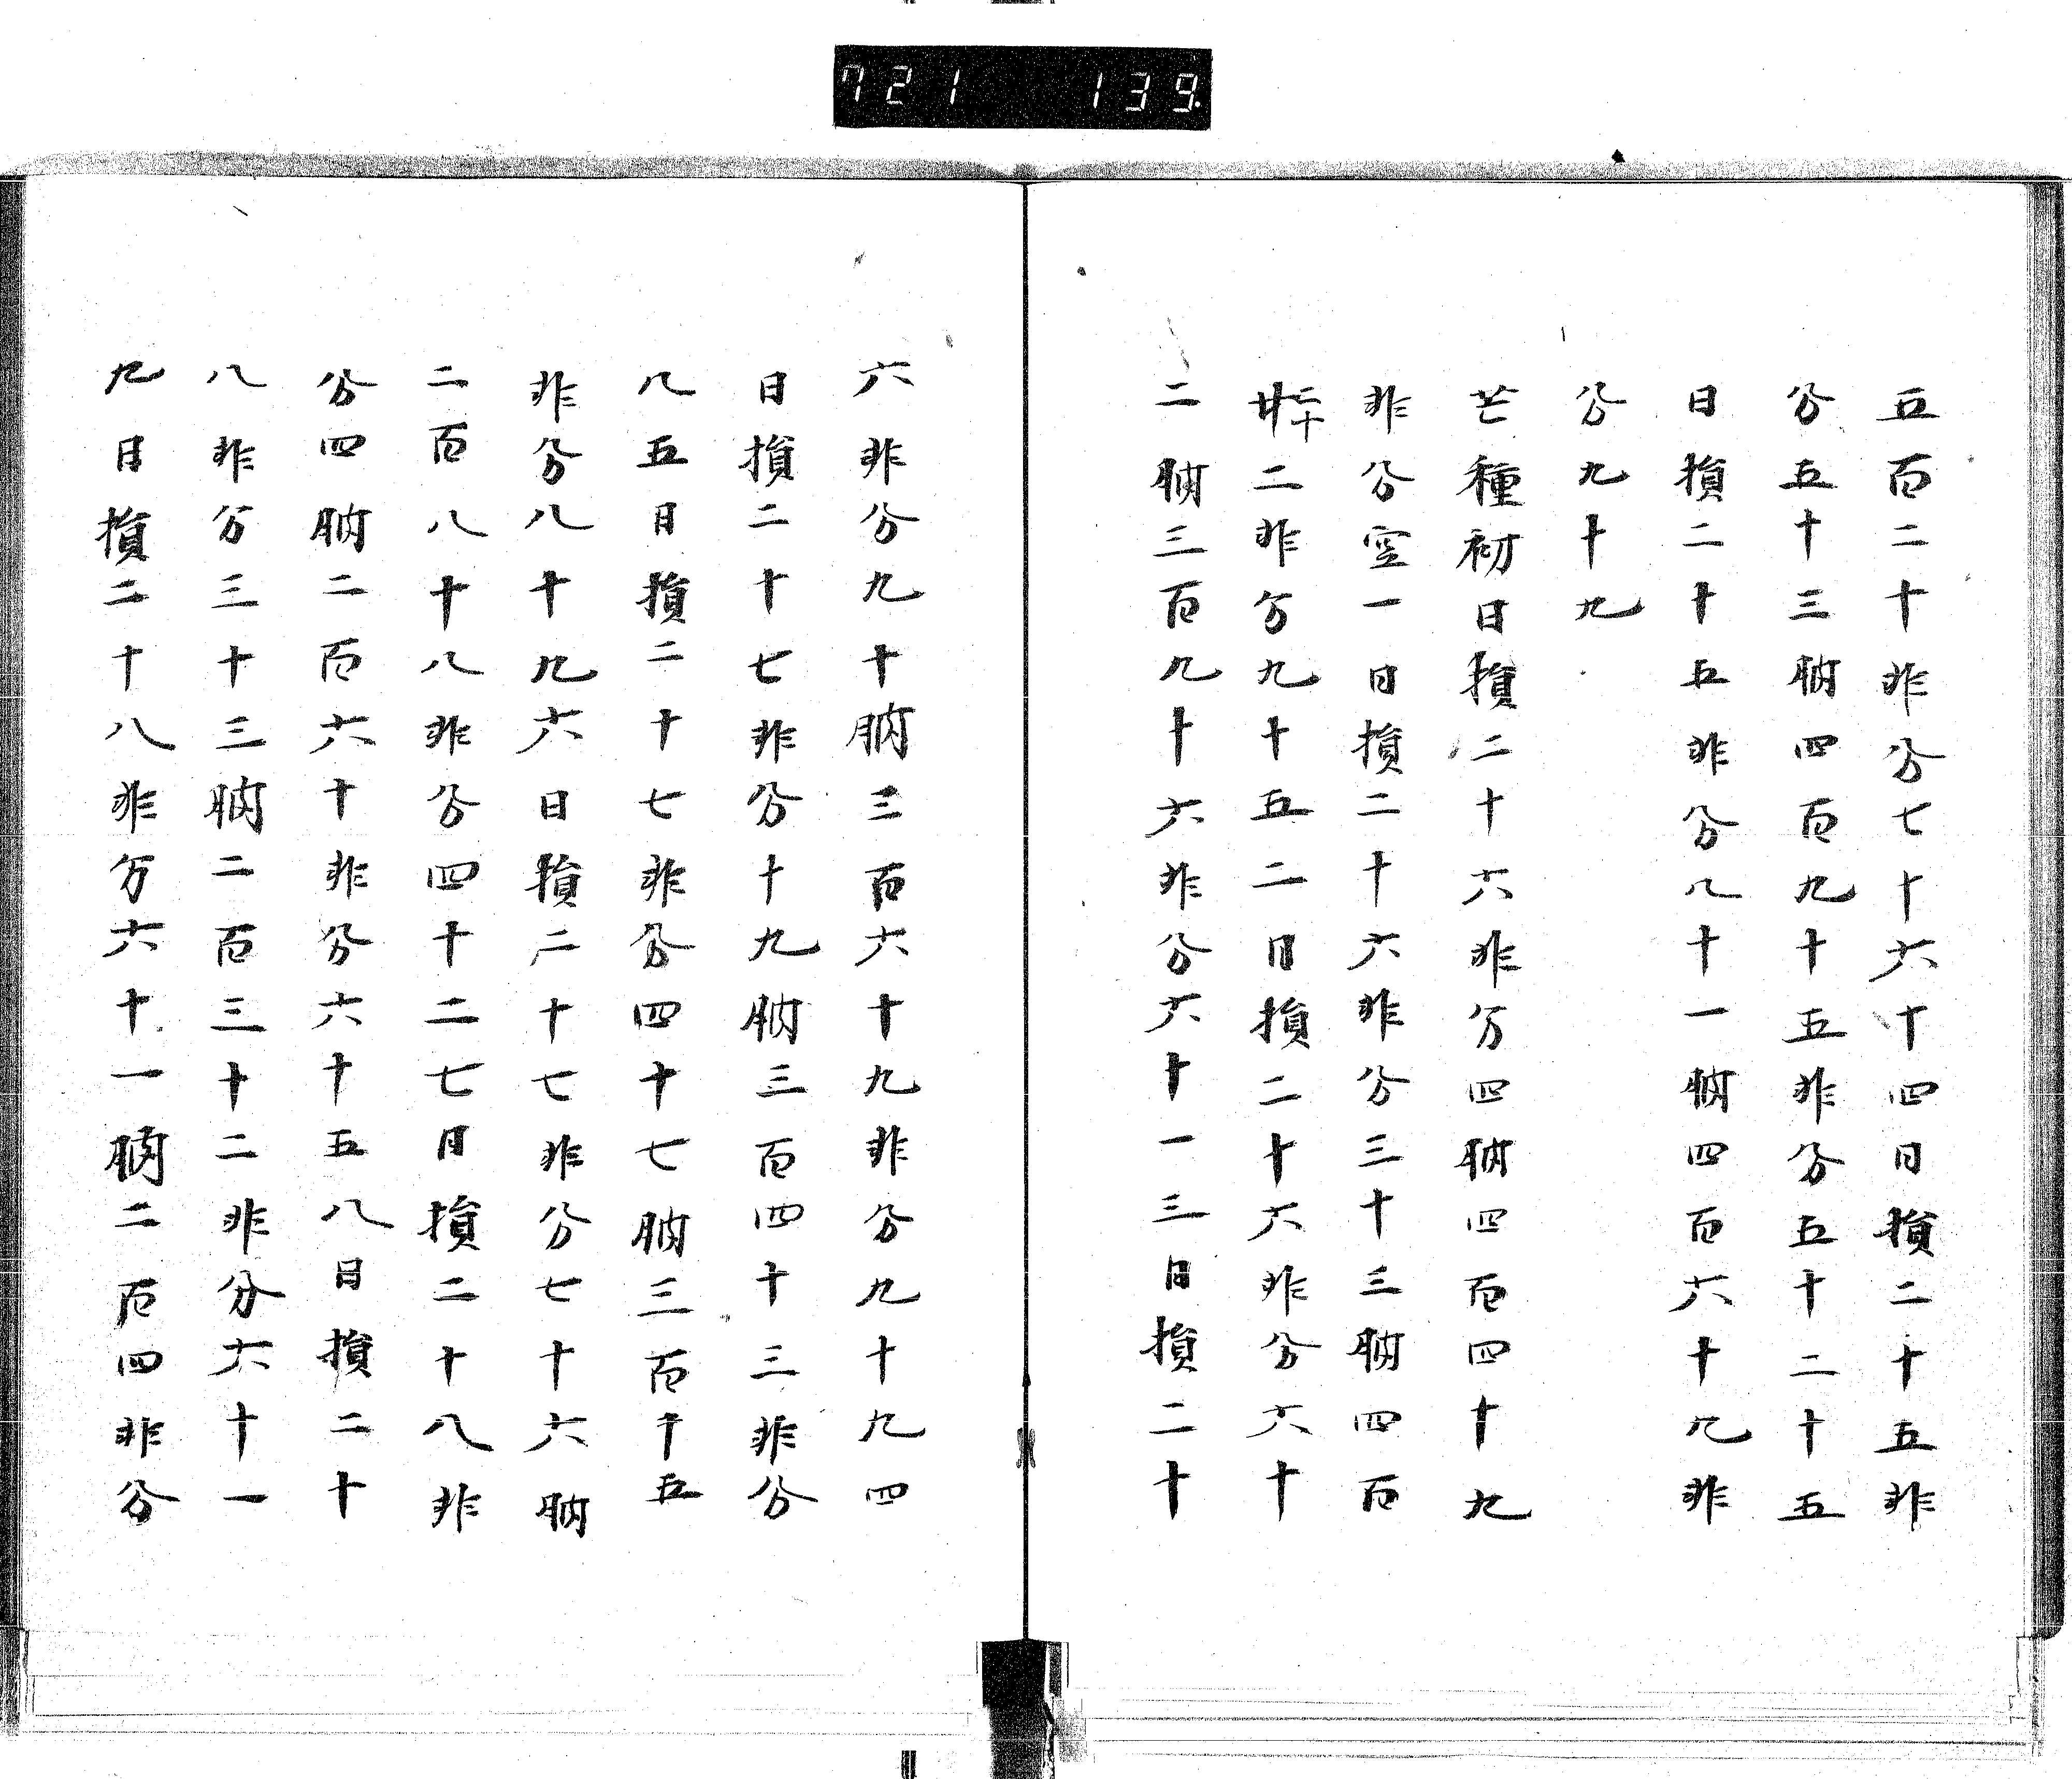 721 139
五百二十非分七十六十四日損二十五非
分五十三朒四百九十五非分五十二十五
日損二十五非分八十一朒四百六十九非
分九十九
芒種初日損二十六非分四朒四百四十九
非分空一日損二十六非分三十三朒四百
廿二十二非分九十五二日損二十六非分六十
二朒三百九十六非分六十一三日損二十
六非分九十朒三百六十九非分九十九四
日損二十七非分十九朒三百四十三非分
八五日損二十七非分四十七朒三百十五
非分八十九六日損二十七非分七十六朒
二百八十八非分四十二七日損二十八非
分四朒二百六十非分六十五八日損二十
八非分三十三朒二百三十二非分六十一
九日損二十八非分六十一朒二百四非分